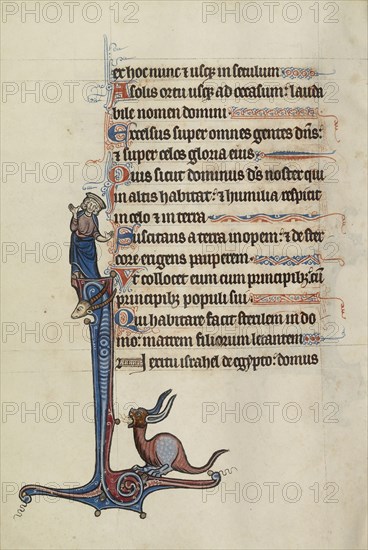 ex hoc nunc ⁊ usq; in seculum
A solis ortu usq; ad occasum: lauda
bile nomen domini
Excelsus super omnes gentes dñs:
⁊ super celos gloria eius
Quis sicut dominus ds noster qui
in altis habitat: ⁊ humilia respicit
in celo ⁊ in terra
Suscitans a terra inopem: ⁊ de ster
core erigens pauperem
Vt collocet eum cum principib; cū
principib; populi sui
Qui habitare facit sterilem in do
mo: matrem filiorum letantem
In exitu israhel de egypto: domus
PHOTO12